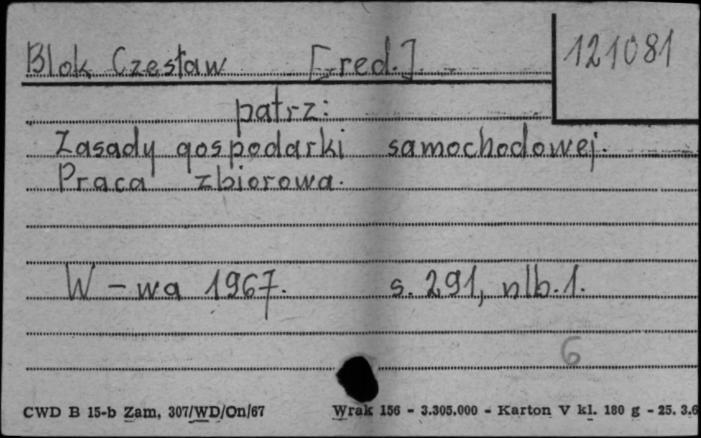 Blok Czesław [red.]
121081
patrz:
Zasady gospodarki samochodowej.
Praca zbiorowa.
W-wa 1967. s. 291, nlb. 1.
6
CWD B 15-b Zam, 307/WD/On/67 Wrak 156 - 3.305.000 - Karton V kl. 180 g - 25. 3.6